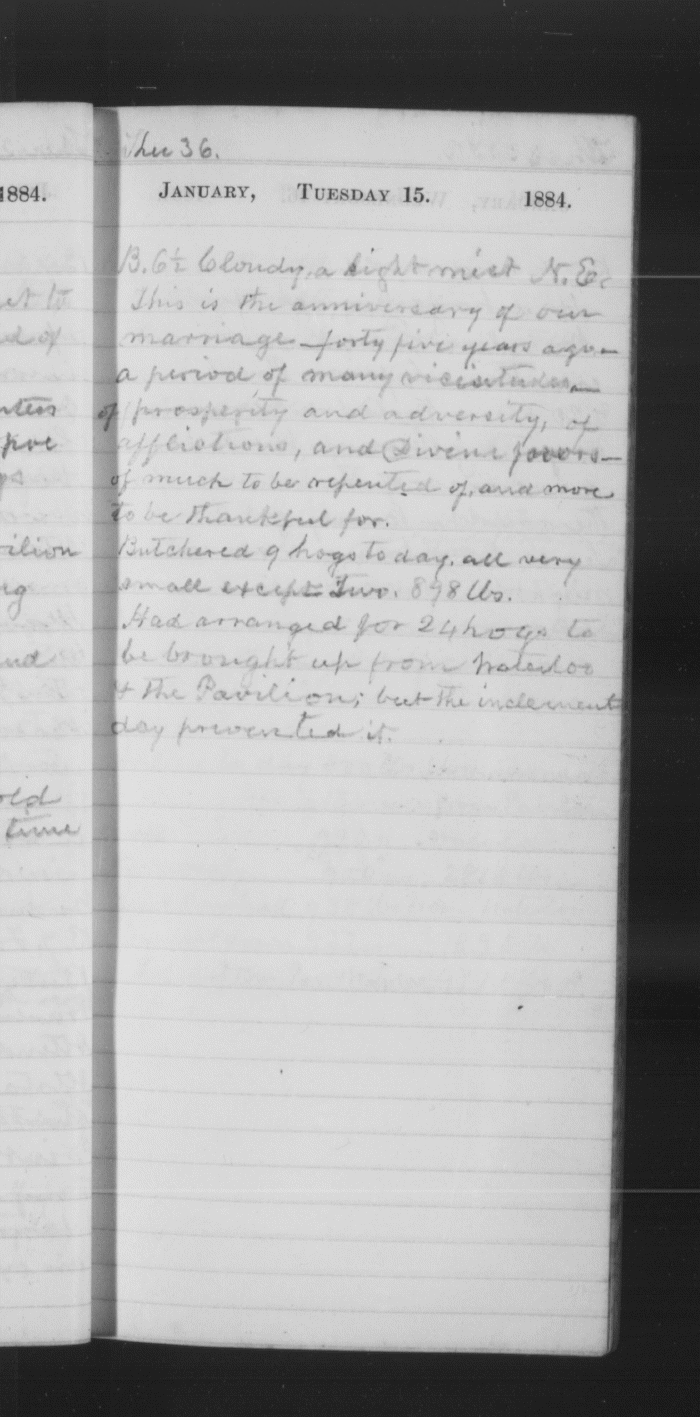 Ther 36.
1884.
JANUARY, TUESDAY 15. 1884.
B. 6½ Cloudy, a light mist N.E.
This is the anniversary of our
marriage—forty five years ago—
a period of many vicissitudes,—
of prosperity and adversity, of
afflictions, and Divine favors—
of much to be repented of, and more
to be thankful for.
Butchered 9 hogs to day, all very
small except two. 898 lbs.
Had arranged for 24 hogs to
be brought up from Waterloo
& the Pavilion; but the inclement
day prevented it.
time